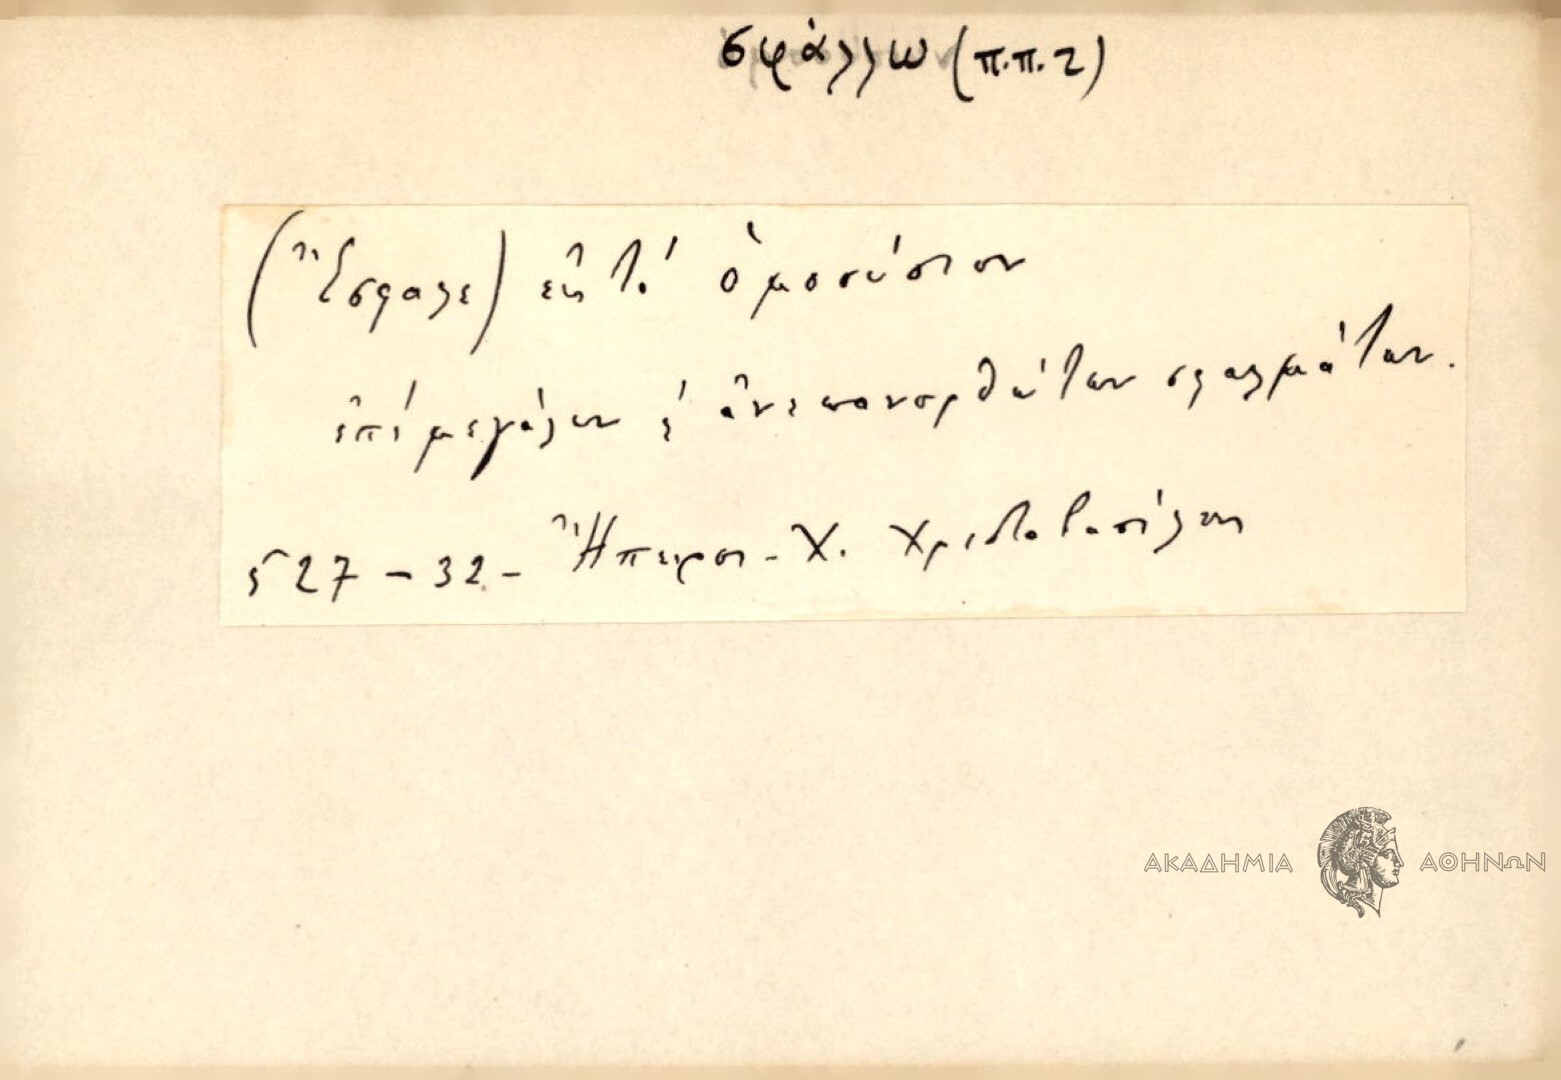 σφάλλω (π.π. 2)
(Ἔσφαλε) εἰς τὸ ὁμοούσιον
ἐπὶ μεγάλων ἀνεπανορθώτων σφαλμάτων.
27 - 32 - Ἤπειρος - Χ. Χρηστοβασίλης
ΑΚΑΔΗΜΙΑ ΑΘΗΝΩΝ